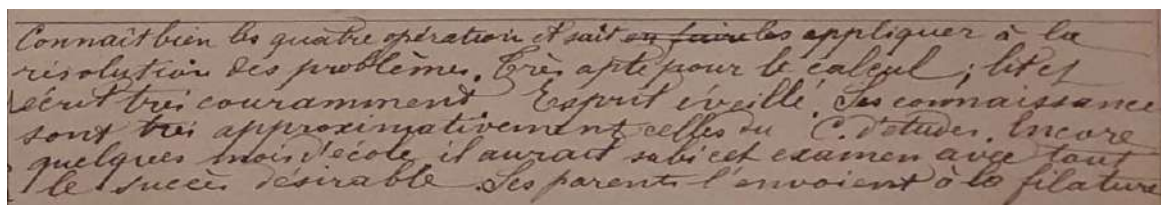 Connaît bien les quatre opération et sait en faire les appliquer à la
résolution des problèmes. Très apte pour le calcul ; lit et
écrit très couramment. Esprit éveillé. Ses connaissance
sont très approximativement celles du C. d'études. Encore
quelques mois d'école, il aurait subi cet examen avec tout
le succès désirable. Ses parents l'envoient à la filature